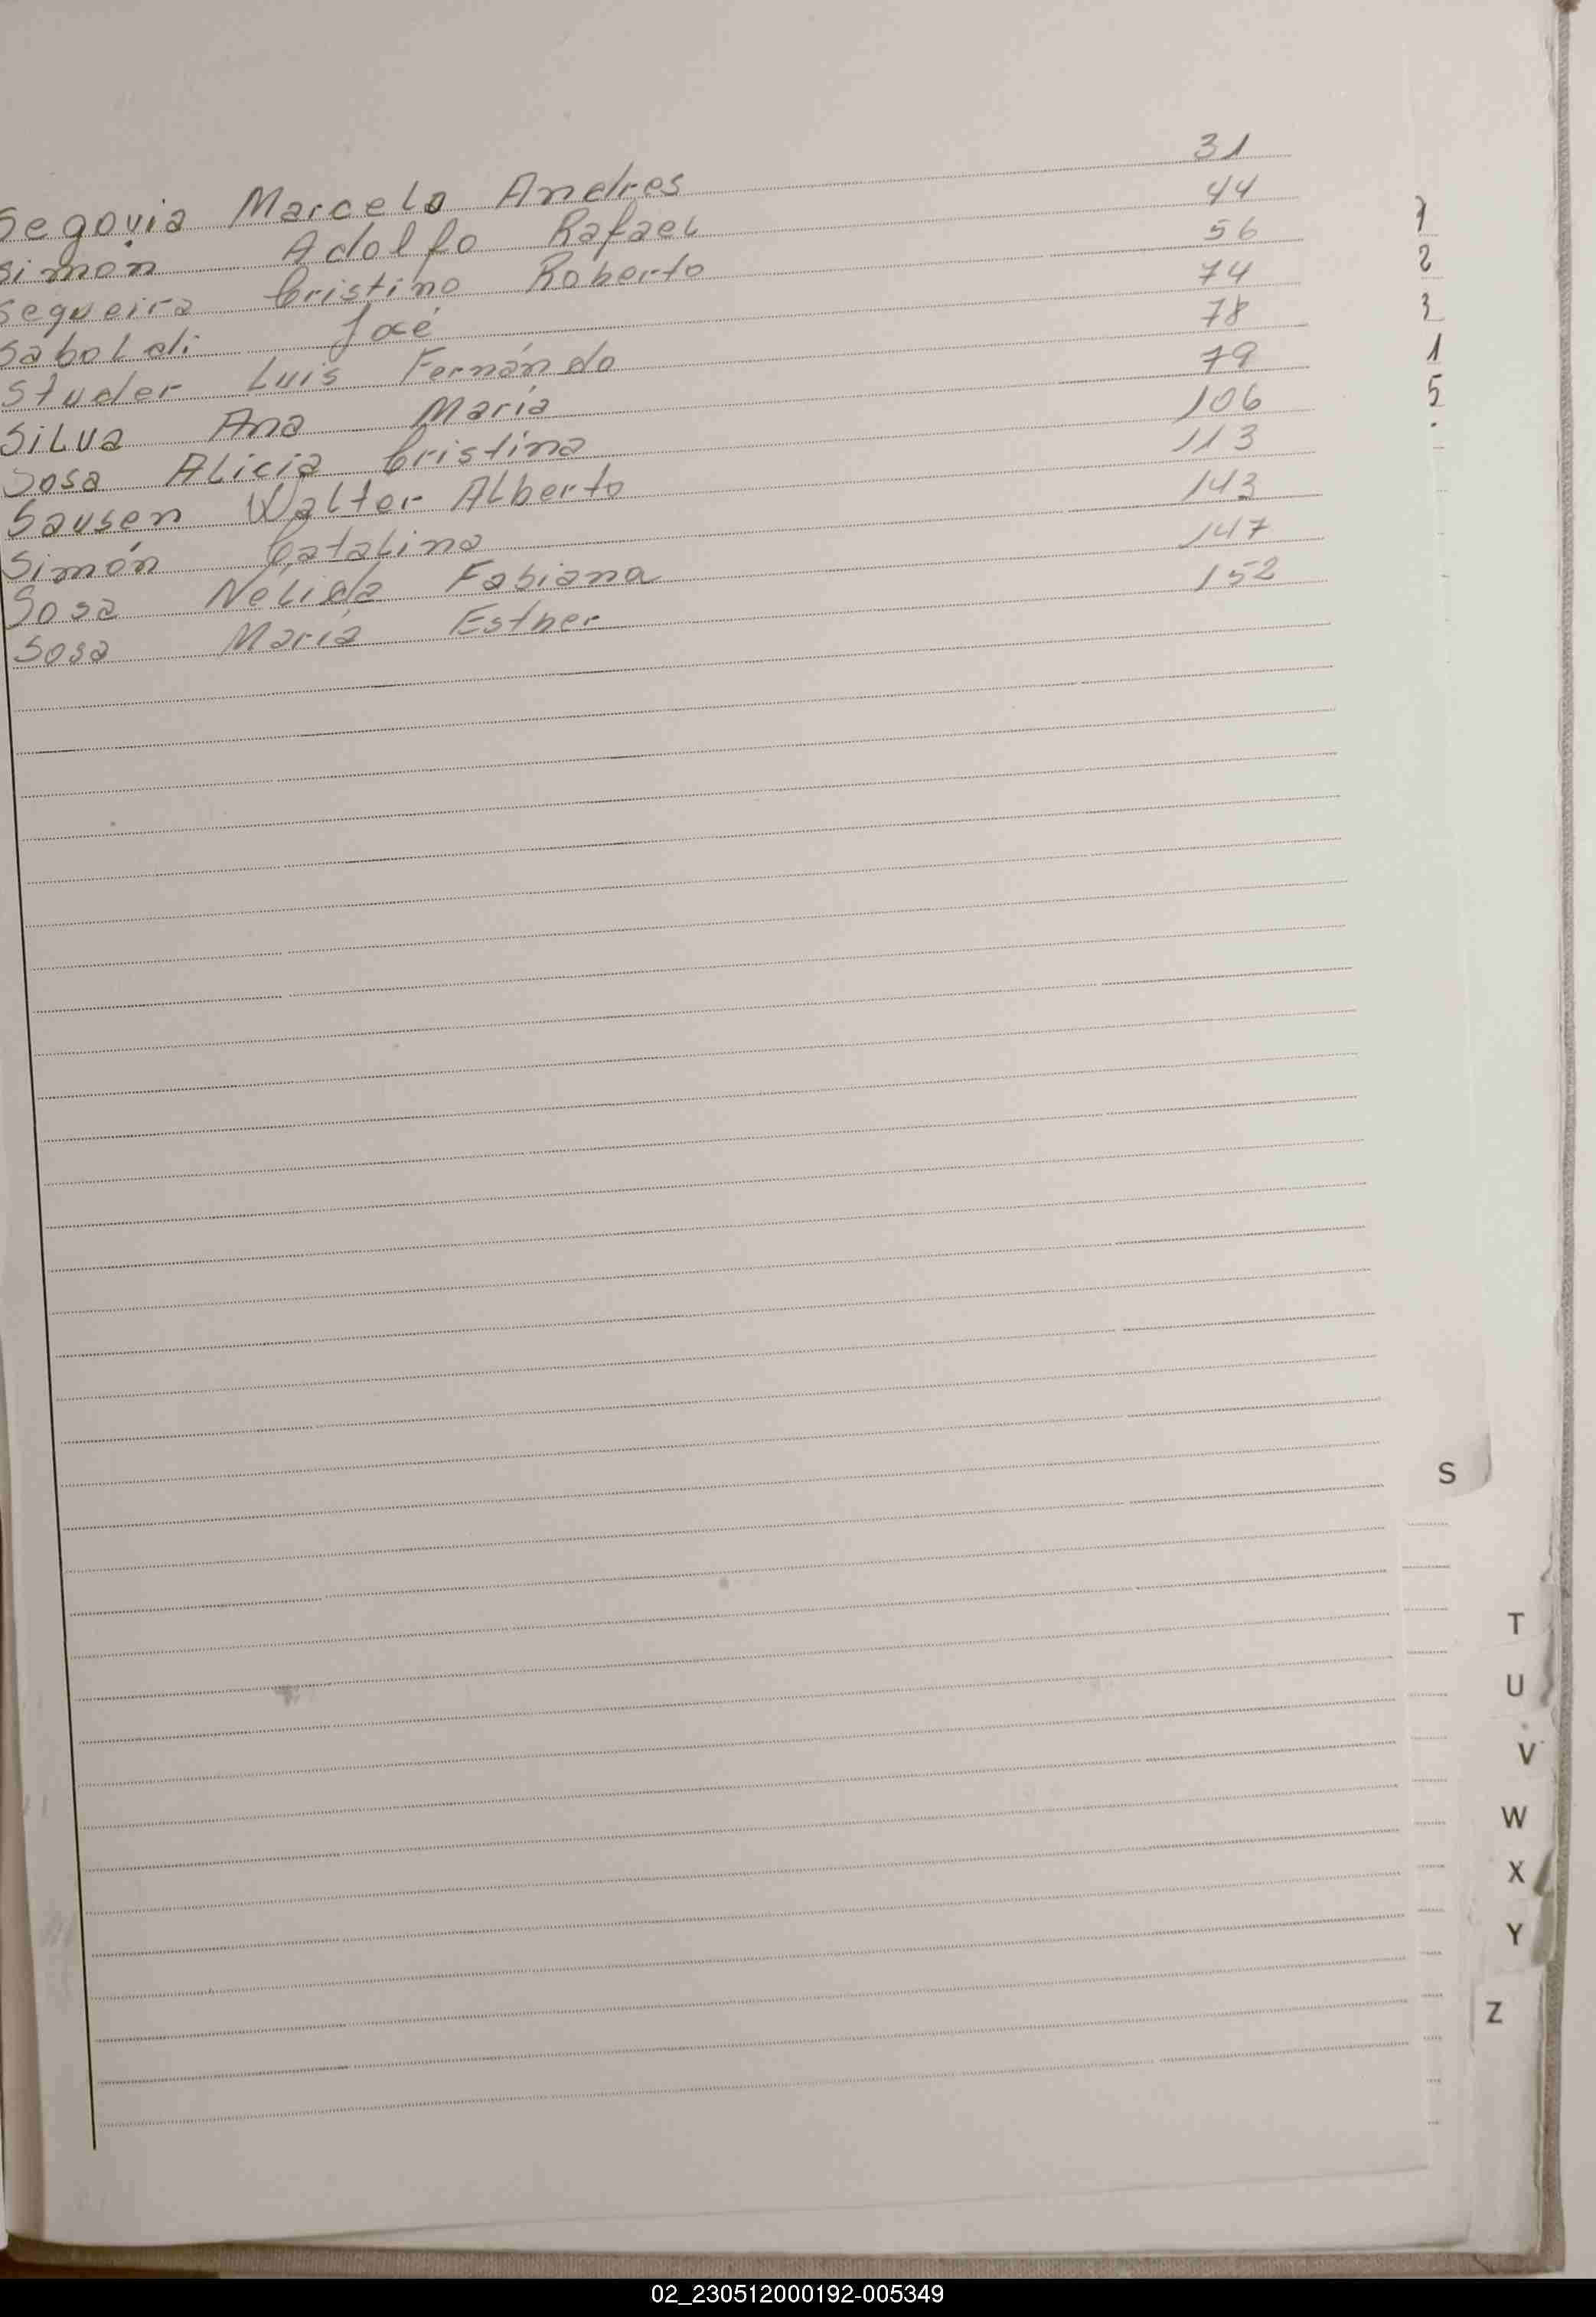 Segovia Marcelo Andres 31
Simón Adolfo Rafael 44
Sequeira Cristino Roberto 56
Saboldi José 74
Studer Luis Fernándo 78
Silva Ana María 79
Sosa Alicia Cristina 106
Sausen Walter Alberto 113
Simón Catalina 143
Sosa Nélida Fabiana 147
Sosa María Esther 152
2
3
1
5
S
T
U
V
W
X
Y
Z
02_230512000192-005349